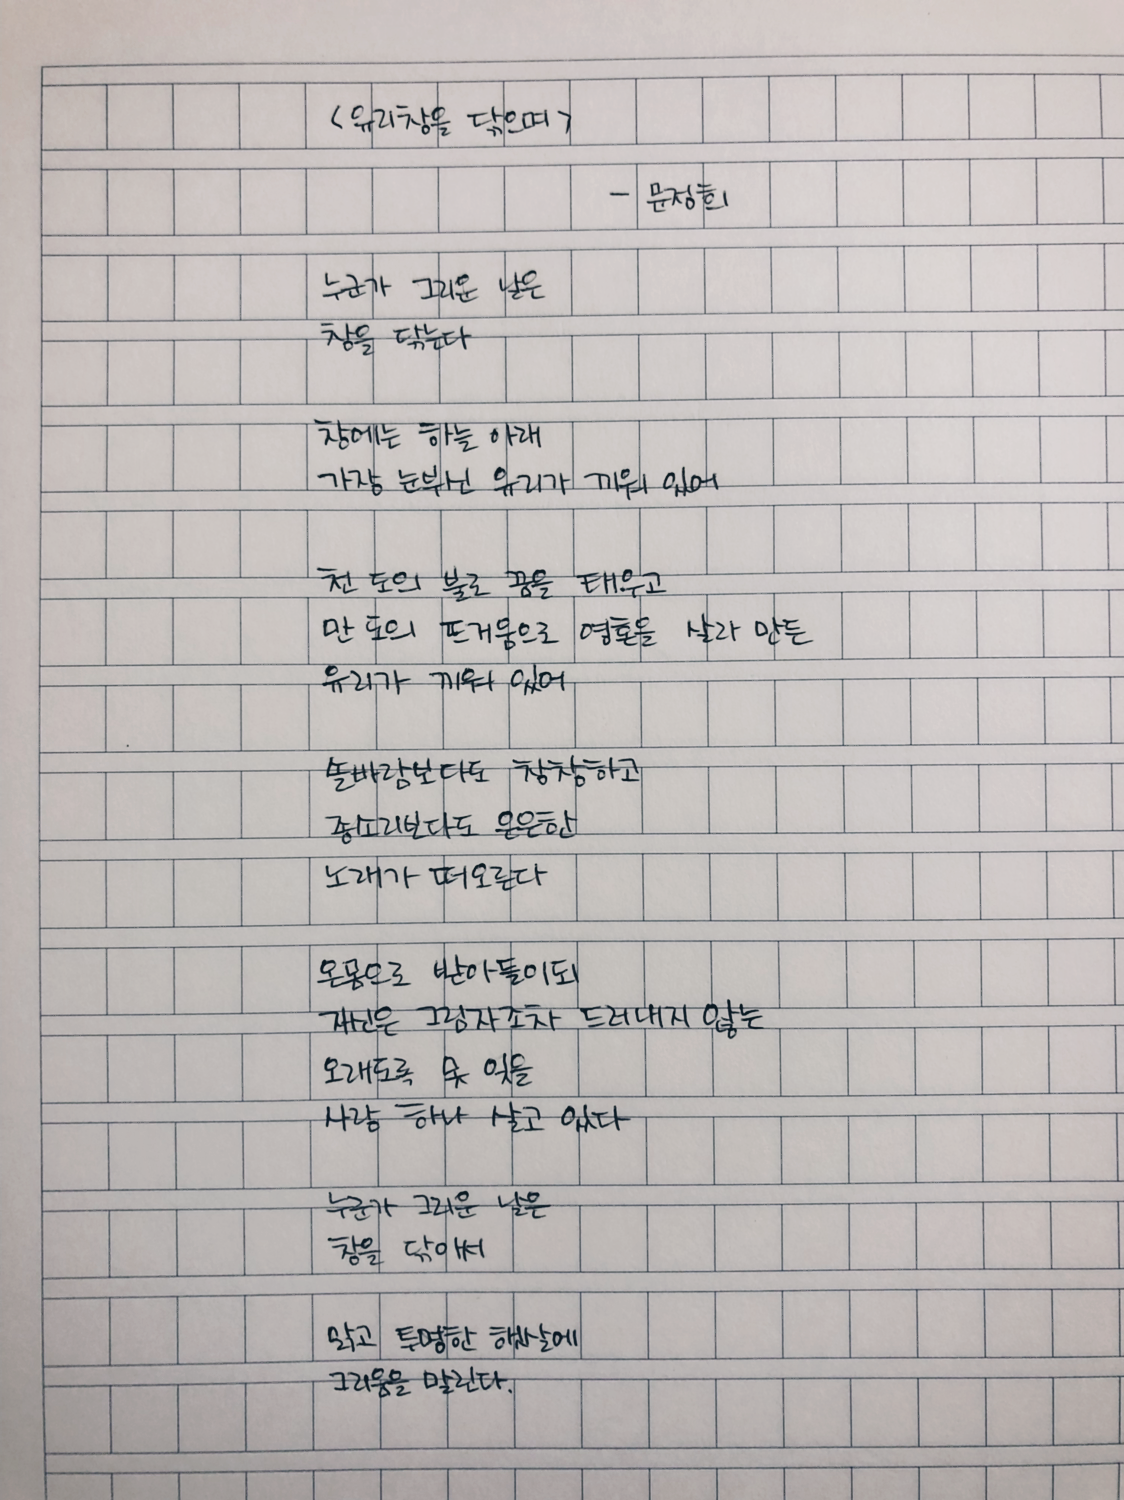 <유리창을 닦으며>
- 문정희
누군가 그리운 날은
창을 닦는다
창에는 하늘 아래
가장 눈부신 유리가 끼워 있어
천 도의 불로 꿈을 태우고
만 도의 뜨거움으로 영혼을 살라 만든
유리가 끼워 있어
솔바람보다도 창창하고
종소리보다도 은은한
노래가 떠오른다
온몸으로 받아들이되
자신은 그림자조차 드러내지 않는
오래도록 못 잊을
사랑 하나 살고 있다
누군가 그리운 날은
창을 닦아서
맑고 투명한 햇살에
그리움을 말린다.